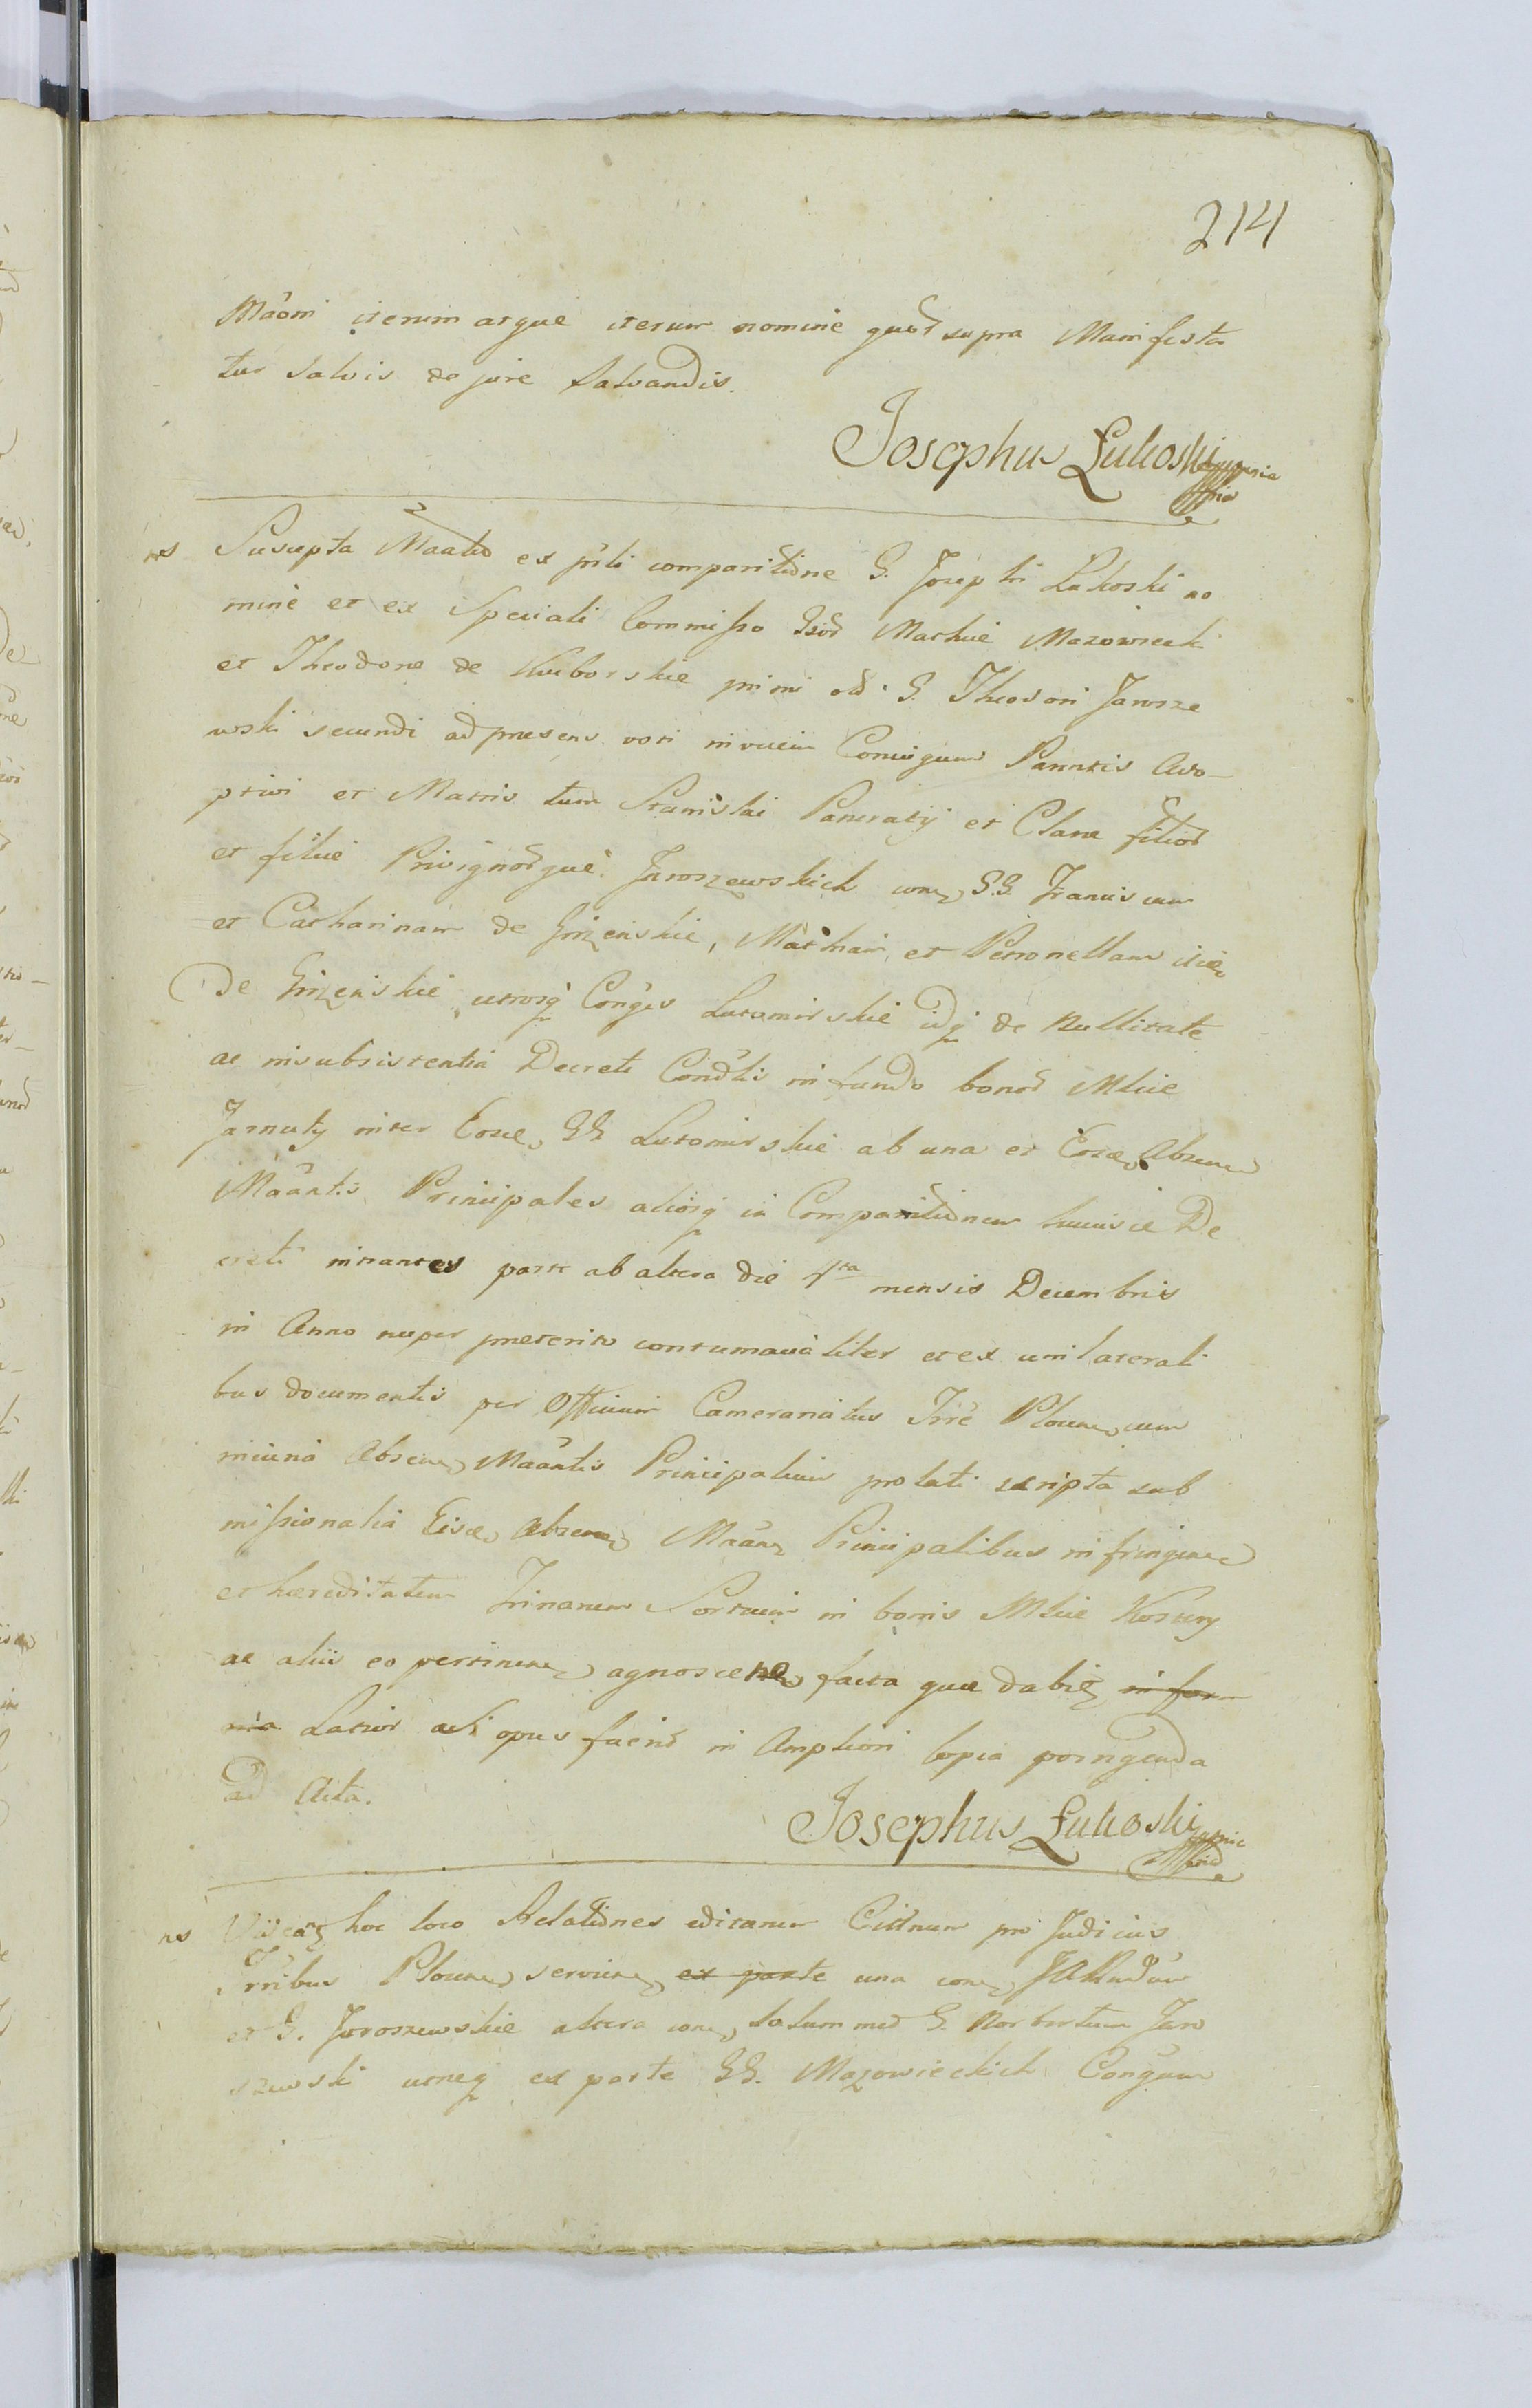 214
Mãoni iterum atque iterum nomine quod supra Manifesta
tur Salvis de jure Salvandis.
Josephus Lukoski
ns Suscepta Maãtio ex prsti comparitione G. Josephi Lukoski no
mine et ex Speciali Commisso Gsod Mathiæ Mazowiecki
et Theodoræ de primi olĩ G. Theodori Jarosze
wski secundi ad præsens voti invicem Conjugum Parentis Ado-
ptivi et Matris tum Stanislai Pancratÿ et Claræ filiod
et filiæ Privignodque Jaroszewskich con G.G. Franciscum
et Catharinam de Giżenskie, Mathiam et Petronellam itid
De Giżenskie utrosq Conges Lutomirskie idq de Nullitate
ac insubsistentia Decreti Condlis in fundo bonod Mlie
Jarnuty inter Eosd GG Lutomirskie ab una et Eosd Absen
Maãntis Principales aliosq in Comparitionem hujusce De
creti intrantes parte ab altera die 4ta mensis Decembris
in Anno nuper præterito contumacialiter et ex unilaterali
bus documentis per Officium Camerariatus Trrĩe Plocen cum
Absen Maãntis Principalium prolati scripta sub
missionalia Eisd Absen Maãn Principalibus infringen
et hæreditatem Sortium in bonis Mlie
ac aliis eo pertinen agnoscen facta quæ dabit in for
ma Latior acsi opus fuerit in Ampliori copia porrigenda
ad Acta.
Josephus Lukoski
ns hoc loco Relationes editarum Cittnum pro Judiciis
Trrĩbus Plocen servien ex parte una con
et G. Jaroszewskie altera con G. Norbertum Jaro
szewski utrinq ex parte GG. Mazowieckich Congum